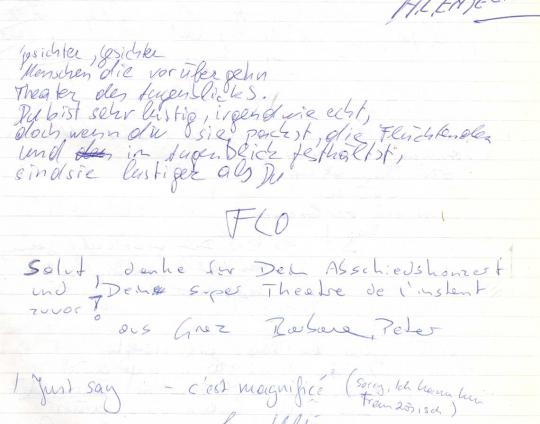 Gesichter, Gesichter
Menschen die vorübergehn
Theater des Augenblicks.
Du bist sehr lustig, irgendwie echt,
doch wenn du sie packst, die Flüchtenden
und im Augenblick festhältst,
sind sie lustiger als Du
FLO
Salut, danke für Dein Abschiedskonzert
und Dein super Theatre de l'instant
zuvor!
aus Graz Barbara, Peter
! Just say - c'est magnifice" (Sorry, Ich kann kein
Französisch)